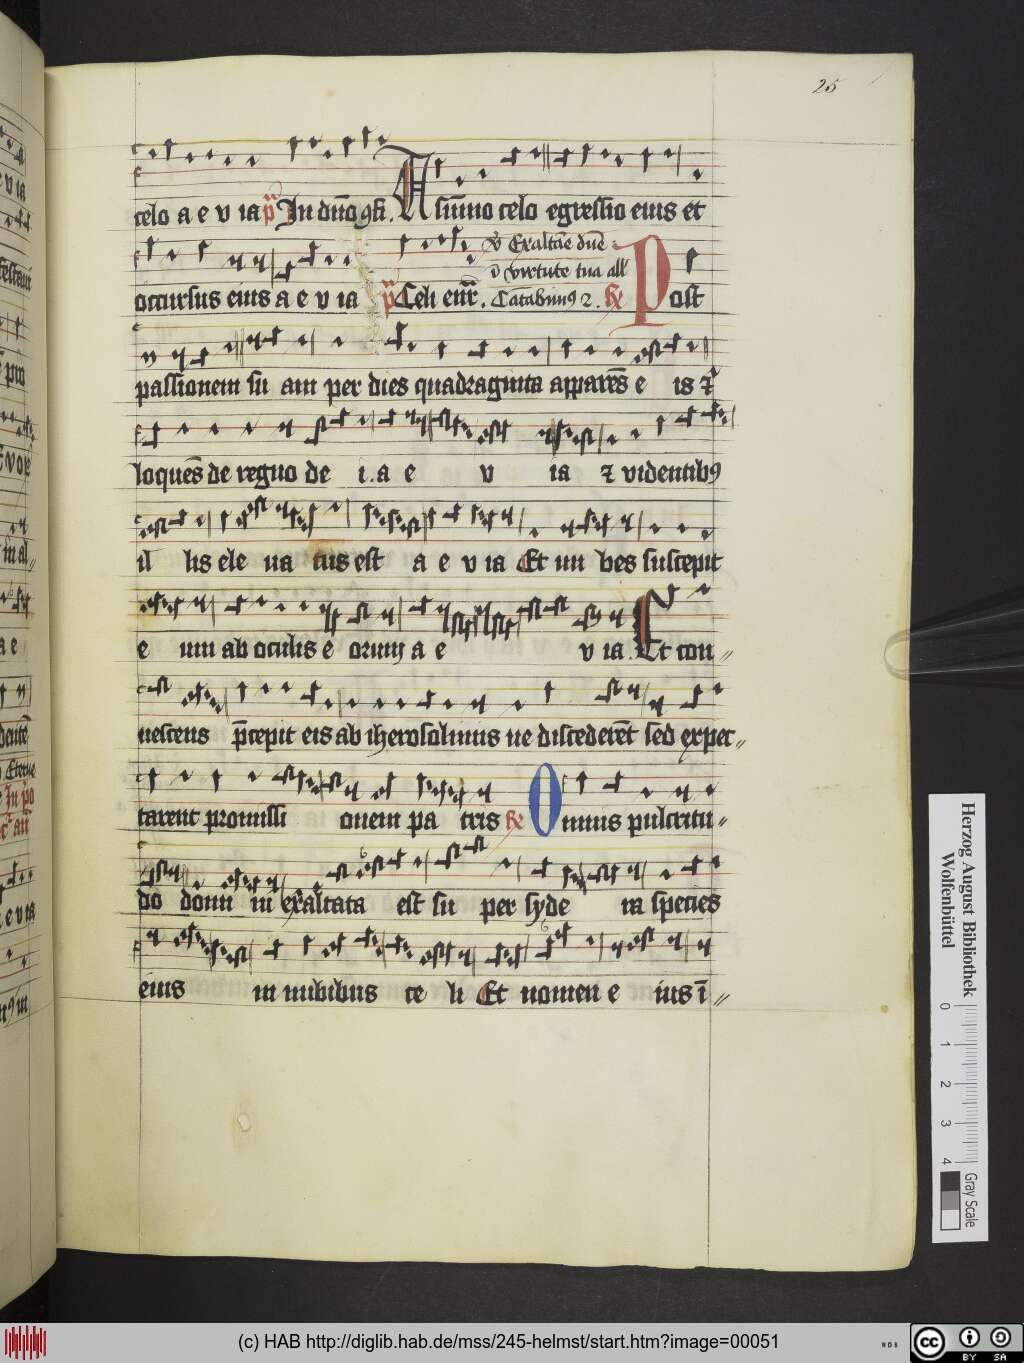 25
celo a e v ia p̄ In dn̄o ꝯfi. A sum̄o celo egressio eius et
occursus eius a e v ia p̄ Celi enr̄. ℣ Exaltare dn̄e
ī virtute tua all'
Cantabimꝰ ⁊. ℟ Post
passionem su am per dies quadraginta apparēs e is ⁊
loquēs de regno de i. a e v ia ⁊ videntibꝰ
il lis ele ua tus est a e v ia Et nu bes suscepit
e um ab oculis e orum a e v ia. Et con⸗
uescens p̄cepit eis ab iherosolimis ne discederēt sed expec⸗
tarent promissi onem pa tris ℟ Omnis pulcritu⸗
do domi ni exaltata est su per syde ra species
eius in nubibus ce li Et nomen e ius ī⸗
Herzog August Bibliothek
Wolfenbüttel
0 1 2 3 4
Gray Scale
(c) HAB http://diglib.hab.de/mss/245-helmst/start.htm?image=00051
WDB
cc BY SA